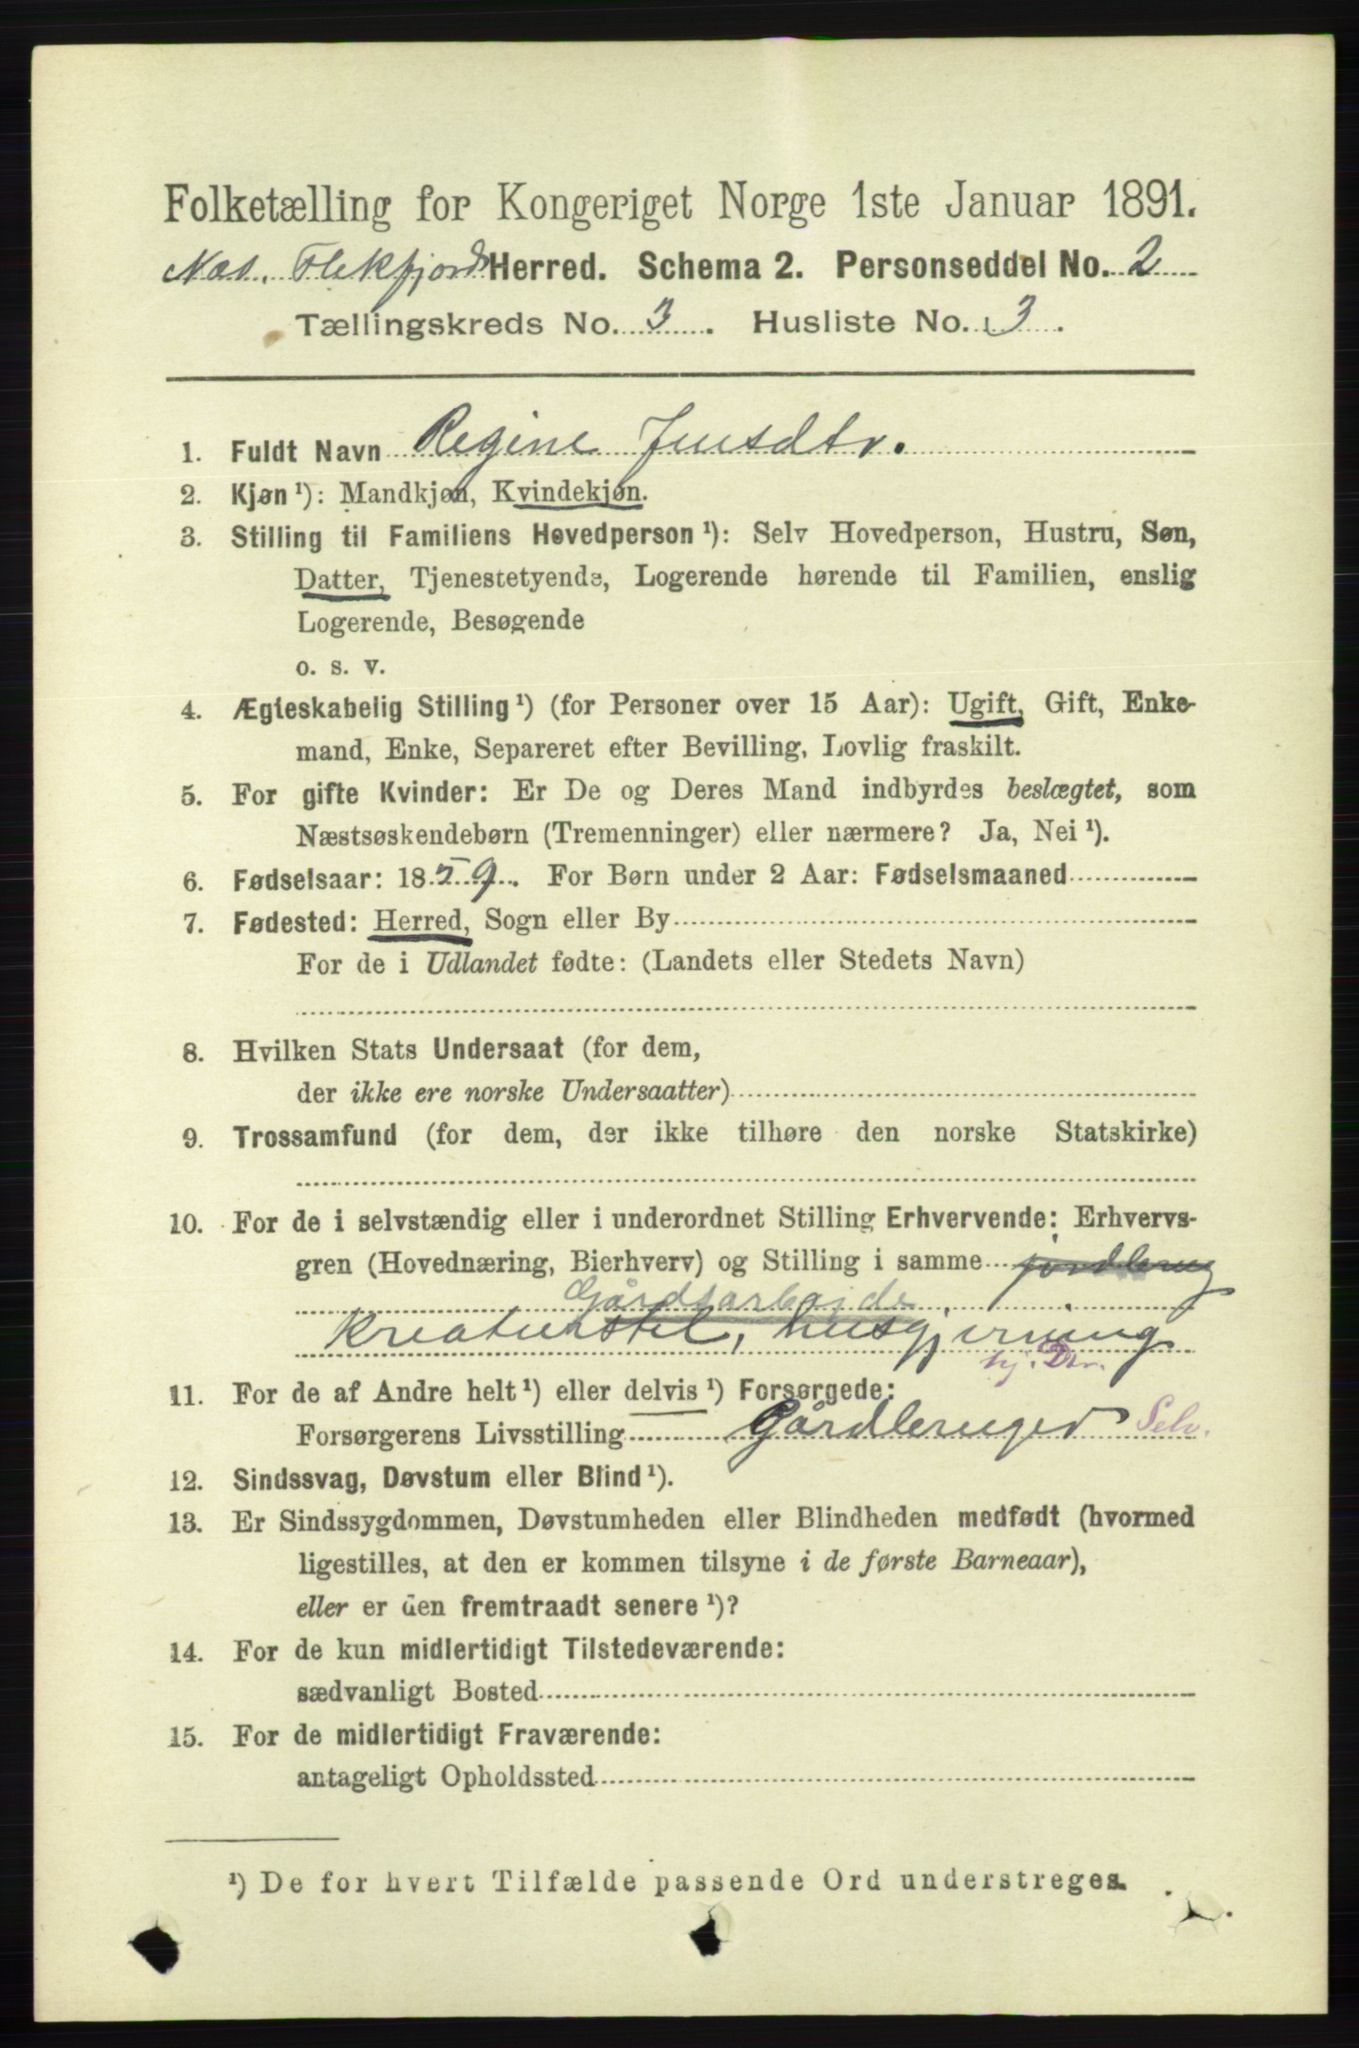 Folketælling for Kongeriget Norge 1ste Januar 1891.
Næs, Flekkefjords Herred. Schema 2. Personseddel No. 2
Tællingskreds No. 3. Husliste No. 3.
1. Fuldt Navn Regine Jensdtr.
2. Kjøn ¹): Mandkjøn, Kvindekjøn.
3. Stilling til Familiens Hovedperson ¹): Selv Hovedperson, Hustru, Søn,
Datter, Tjenestetyende, Logerende hørende til Familien, enslig
Logerende, Besøgende
o. s. v.
4. Ægteskabelig Stilling ¹) (for Personer over 15 Aar): Ugift, Gift, Enke-
mand, Enke, Separeret efter Bevilling, Lovlig fraskilt.
5. For gifte Kvinder: Er De og Deres Mand indbyrdes beslægtet, som
Næstsøskendebørn (Tremenninger) eller nærmere? Ja, Nei ¹).
6. Fødselsaar: 1859. For Børn under 2 Aar: Fødselsmaaned
7. Fødested: Herred, Sogn eller By
For de i Udlandet fødte: (Landets eller Stedets Navn)
8. Hvilken Stats Undersaat (for dem,
der ikke ere norske Undersaatter)
9. Trossamfund (for dem, der ikke tilhøre den norske Statskirke)
10. For de i selvstændig eller i underordnet Stilling Erhvervende: Erhvervs-
gren (Hovednæring, Bierhverv) og Stilling i samme jordbrug
Gårdsarbejde
Kreaturstel, husgjerning
hj. Dtr.
11. For de af Andre helt ¹) eller delvis ¹) Forsørgede:
Forsørgerens Livsstilling Gårdbruger Selv.
12. Sindssvag, Døvstum eller Blind ¹).
13. Er Sindssygdommen, Døvstumheden eller Blindheden medfødt (hvormed
ligestilles, at den er kommen tilsyne i de første Barneaar),
eller er den fremtraadt senere ¹)?
14. For de kun midlertidigt Tilstedeværende:
sædvanligt Bosted
15. For de midlertidigt Fraværende:
antageligt Opholdssted
¹) De for hvert Tilfælde passende Ord understreges.